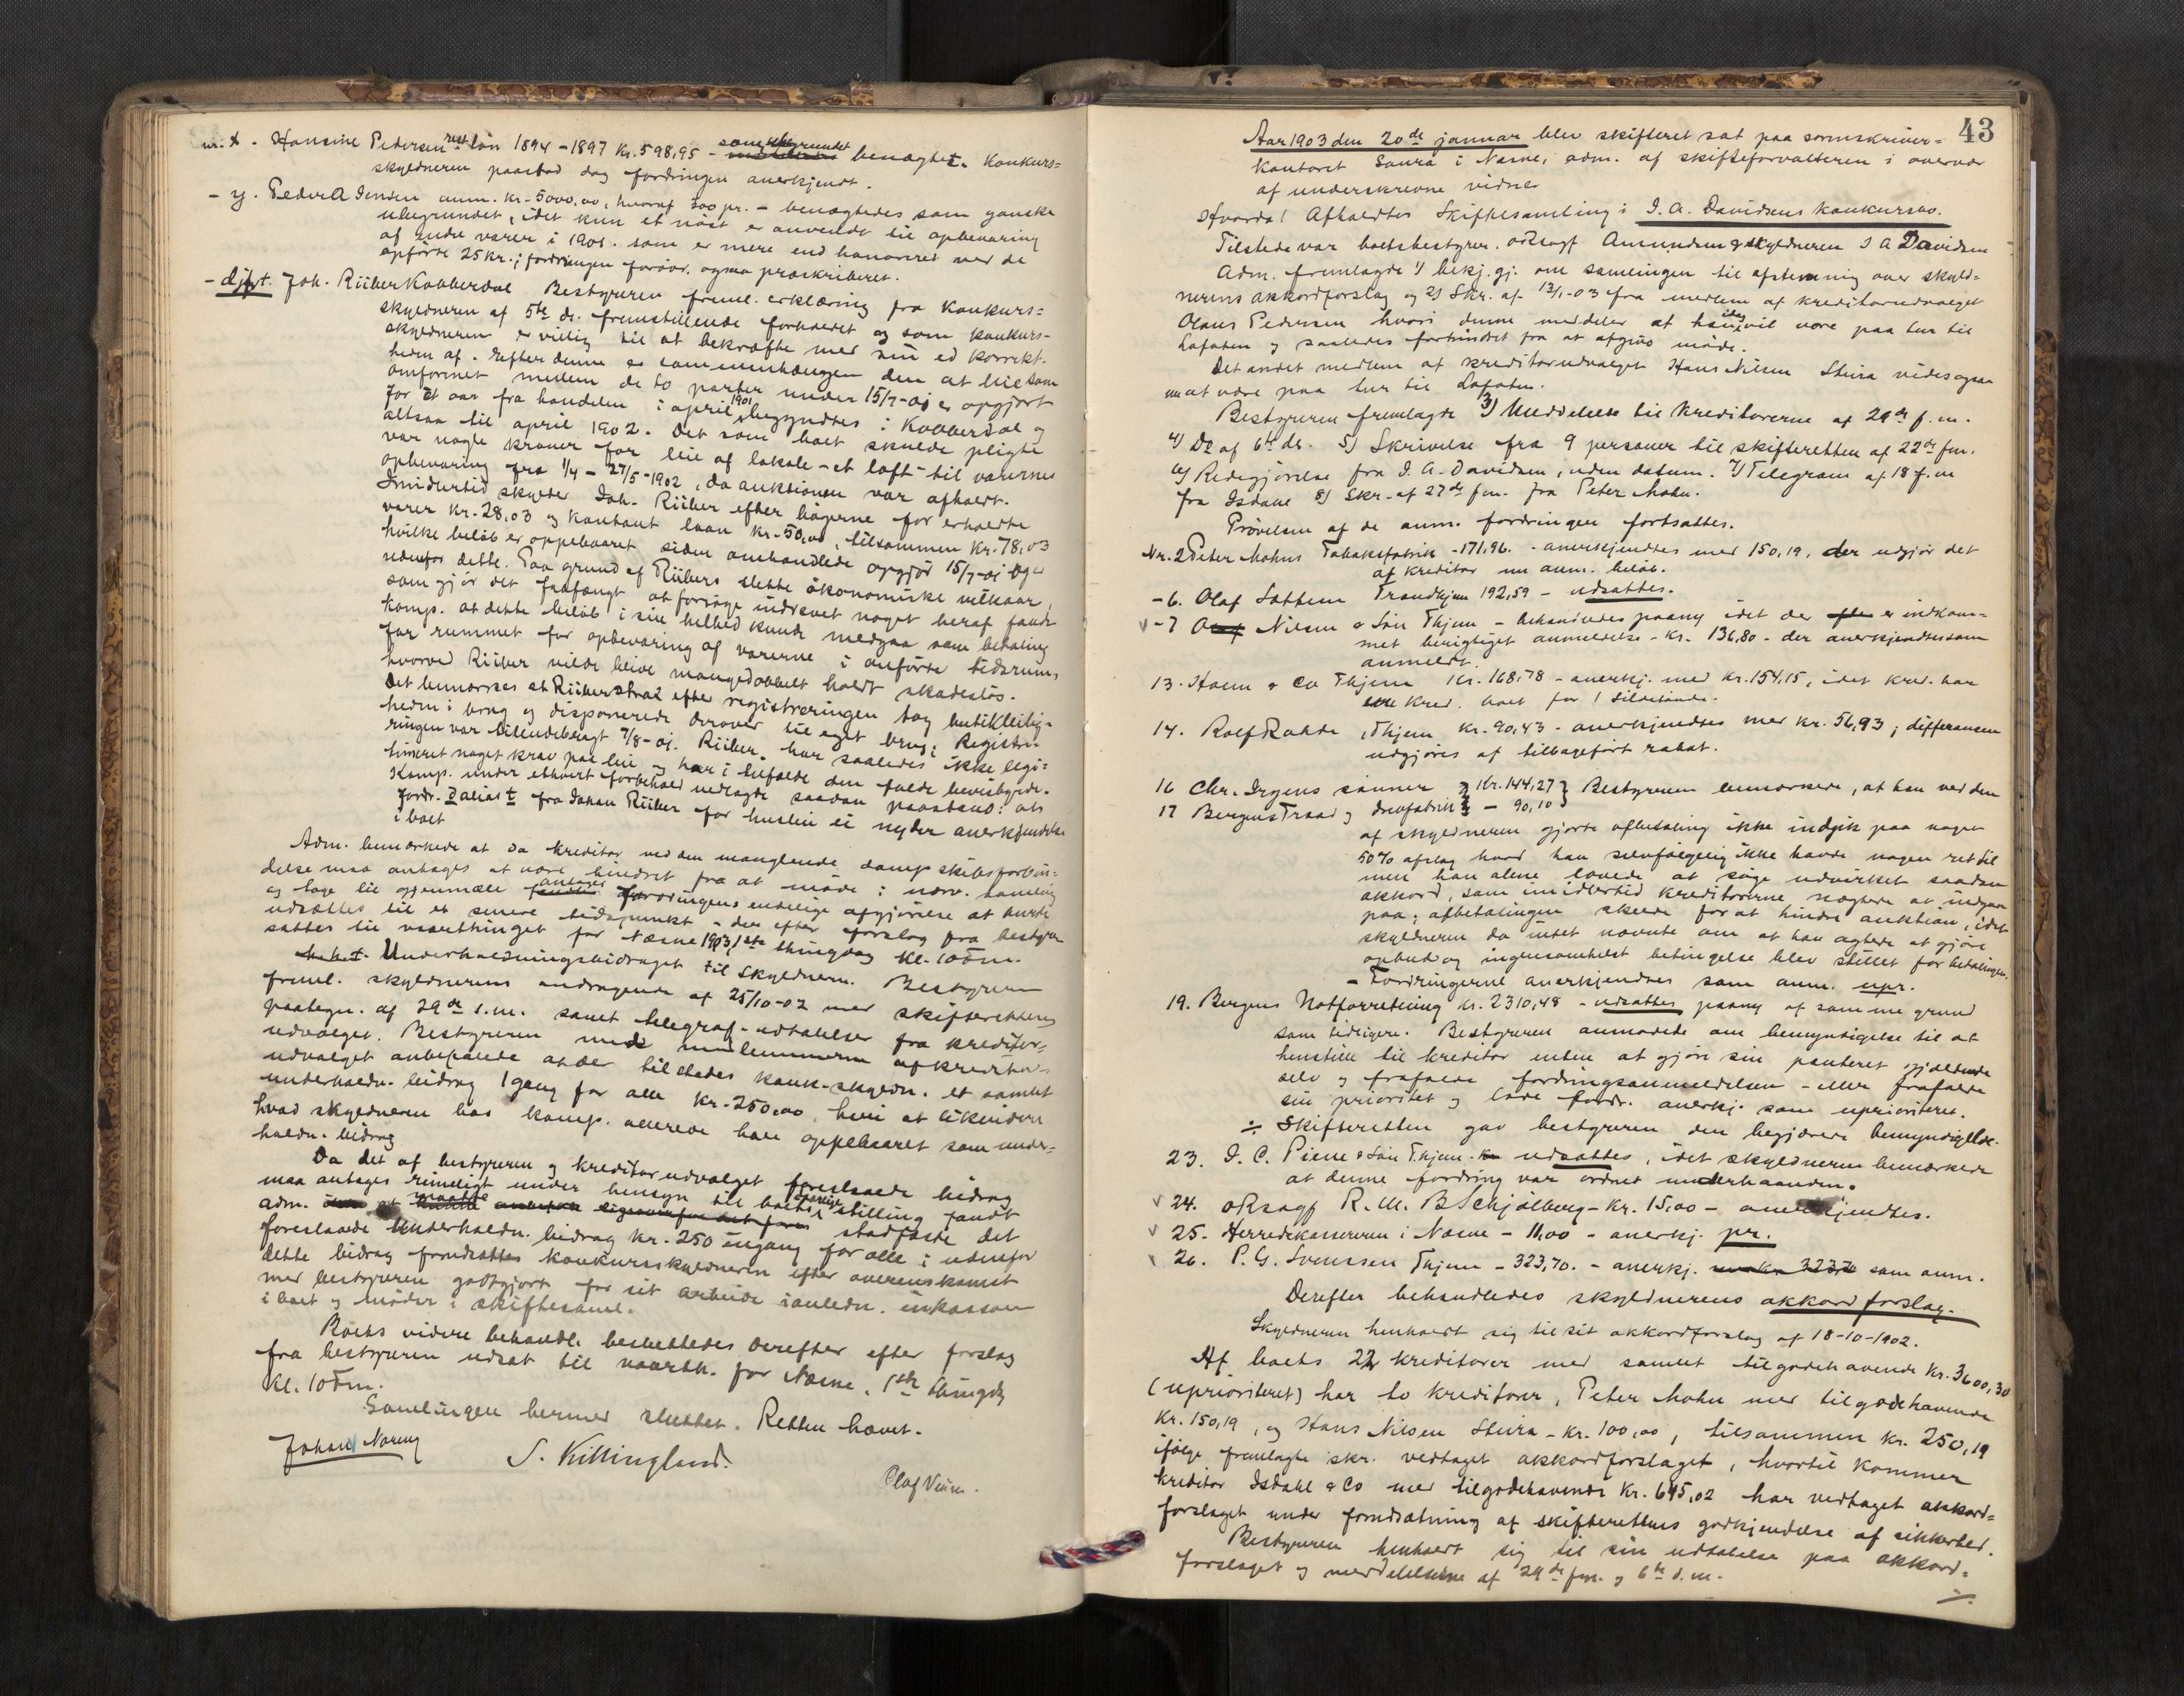 nr. x. Hansine Pedersen rest løn 1894-1897 Kr. 598,95 - som ubegrundet benægtet. Konkurs=
skyldneren paastod dog fordringen anerkjendt.
- y. Peder A Jensen anm. kr. 5000,00, hvoraf 500 pr. - benægtedes som ganske
ubegrundet, idet kun et nøst er anvendt til opbevaring
af endel varer i 1901. som er mere end honoreret ved de
opførte 25 kr.; fordringen forøvr. ogsaa præskriberet.
- Joh. Riiber Kobberdal Bestyreren freml. erklæring fra konkurs=
skyldneren af 5te ds. fremstillende forholdet og som konkurs-
skyldneren er villig til at bekræfte med sin ed korrekt-
heden af. Efter denne er sammenhængen den at leie som
omforenet mellem de to parter under 15/7-01 er opgjort
for et aar fra handelen i april 1901 begyndtes i Kobberdal og
altsaa til april 1902. Det som boet skulde pligte
var nogle kroner for leie af lokale - et loft - til varernes
opbevaring fra 1/4 - 27/5-1902, da auktionen var afholdt.
Imidlertid skylder Joh. Riiber efter bøgerne for erholdte
varer kr. 28,03 og kontant laan kr. 50,00, tilsammen kr. 78,03
hvilke beløb er oppebaaret siden omhandlede opgjør 15/7-01 og er
udenfor dette. Paa grund af Riibers slette økonomiske vilkaar,
som gjør det faafængt at forsøge inddrevet noget heraf fandt
komp. at dette beløb i sin helhed kunde medgaa som betaling
for rummet for opbevaring af varerne i anførte tidsrum,
hvorved Riiber vilde blive mangedobbelt holdt skadesløs.
Det bemærkes at Riiber strax efter registreringen tog butikleilig-
heden i brug og disponerede derover til eget brug; Registre-
ringen var tilendebragt 7/8-01. Riiber har saaledes ikke legi=
timeret noget krav paa leie og har i tilfælde den fulde bevisbyrde.
Komp. under ethvert forbehold nedlagde saadan paastand: at
Fordr. d alias t fra Johan Riiber for husleie ei nyder anerkjendelse
i boet
Adm. bemærkede at da kreditor ved den manglende dampskibsforbin=
delse maa antages at være hindret fra at møde i nærv. samling
og tage til gjenmæle antages fordringens endelige afgjørelse at burde
udsættes til et senere tidspunkt - den efter forslag fra bestyr.
sattes til vaarthinget for Næsne 1903 1ste thingdag kl. 10 fm.
Underholdningsbidraget til skyldneren. Bestyreren
freml. skyldnerens andragende af 25/10-02 med skifterettens
paategn. af 29de s.m. samt telegraf-udtalelser fra kreditor=
udvalget. Bestyreren med medlemmerne af kreditor=
udvalget anbefalede at der tilstodes konk.-skyldn. et samlet
underholdn. bidrag 1 gang for alle kr. 250,00 heri at likvidere
hvad skyldneren hos komp. allerede har oppebaaret som under=
holdn. bidrag
Da det af bestyreren og kreditorudvalget foreslaaede bidrag
maa antages rimeligt under hensyn til boets stilling fandt
adm. at maatte stadfæste det
foreslaaede underholdn. bidrag kr. 250 engang for alle; udenfor
dette bidrag forudsættes konkursskyldneren efter overenskomst
med bestyreren godtgjort for sit arbeide i anledn. inkasson
i boet og møder i skiftesaml.
Boets videre behandl. besluttedes derefter efter forslag
fra bestyreren udsat til vaarth. for Næsne, 1ste thingdg
kl. 10 Fm.
Samlingen hermed sluttet. Retten hævet.
Johan Noreng
S. Killingland.
Olaf
43
Aar 1903 den 20de januar blev skifteret sat paa sorenskriver=
kontoret Sauraa i Næsne, adm. af skifteforvalteren i overvær
af underskrevne vidner
Hvorda! Afholdtes skiftesamling i J. A. Davidsens konkursbo.
Tilstede var bobestyrer. oRsagf Amundsen & skyldneren J A Davidsen
Adm. fremlagde 1) bekj.gj. om samlingen til afstemning over skyld=
nerens akkordforslag og 2) Skr. af 13/1-03 fra medlem af kreditorudvalget
Olaus Pedersen hvori denne meddeler at han idag vil være paa tur til
Lofoten og saaledes forhindret fra at afgive møde.
Det andet medlem af kreditorudvalget Hans Nilsen Stuvra vides ogsaa
nu at være paa tur til Lofoten.
Bestyreren fremlagde 3) Meddelelse til kreditorerne af 29de f.m.
4) Do af 6te ds. 5) Skrivelse fra 9 personer til skifteretten af 22de fm.
6) Redegjørelse fra J. A. Davidsen, uden datum. 7) Telegram af 18 f.m
fra Isdahl 8) Skr. af 27de fm. fra Peter Mohn.
Prøvelsen af de anm. fordringer fortsattes.
Nr. 2 Peter Mohns Tobaksfabrik - 171,96. - anerkjendtes med 150,19, der udgjør det
af kreditor nu anm. beløb.
- 6. Olaf Sættem Trondhjem 192,59 - udsattes.
- 7 Nilsen & Søn Thjem - behandledes paany idet der er indkom=
met berigtiget anmeldelse - kr. 136,80 - der anerkjendtes som
anmeldt.
13. Høem & Co Thjem Kr. 168,78 - anerkj. med kr. 154,15, idet kred. har
kred. boet for 1 sildetønde.
14. Rolf Rohde, Thjem kr. 90,43 - anerkjendtes med kr. 56,93; differansen
udgjøres af tilbageført rabat.
16 Chr. Irgens sønner } Kr. 144,27 } Bestyreren bemærkede, at han ved den
17 Bergens Traad og Drevfabrik } - 90,10
af skyldneren gjorte afbetaling ikke indgik paa nogen
50% afslag hvad han selvfølgelig ikke havde nogen ret til
men han alene lovede at søge udvirket saadan
akkord, som imidlertid kreditorerne nægtede at indgaa
paa; afbetalingen skede for at hindre auktion, idet
skyldneren da intet nævnte om at han agtede at gjøre
opbud og ingensomhelst betingelse blev stillet for betalingen.
- Fordringerne anerkjendtes som anm. upr.
19. Bergens Notforretning kr. 2310,48 - udsattes paany af samme grund
som tidligere. Bestyreren anmodede om bemyndigelse til at
henstille til kreditor enten at gjøre sin panteret gjældende
selv og frafalde fordringsanmeldelsen - eller frafalde
sin prioritet og lade fordr. anerkj. som uprioriteret.
÷ Skifteretten gav bestyreren den begjærede bemyndigelse.
23. J. C. Piene & Søn Thjem. udsattes, idet skyldneren bemærkede
at denne fordring var ordnet underhaanden.
24. oRsagf R. M. B Schjølberg - kr. 15,00 - anerkjendtes.
25. Herredskassereren i Næsne - 11,00 - anerkj. pr.
26. P. G. Svenssen Thjem - 323,70. - anerkj. som anm.
Derefter behandledes skyldnerens akkordforslag.
Skyldneren henholdt sig til sit akkordforslag af 18-10-1902.
Af boets 22 kreditorer med samlet tilgodehavende kr. 3600,30
(uprioriteret) har to kreditorer, Peter Mohn med tilgodehavende
kr. 150,19, og Hans Nilsen Stuvra - kr. 100,00, tilsammen kr. 250,19
ifølge fremlagte skr. vedtaget akkordforslaget, hvortil kommer
kreditor Isdahl & Co med tilgodehavende kr. 645,02 har vedtaget akkord=
forslaget under forudsætning af skifterettens godkjendelse af sikkerhed.
Bestyreren henholdt sig til sin udtalelse paa akkord=
forslaget og meddelelserne af 29de fm. og 6te d.m.